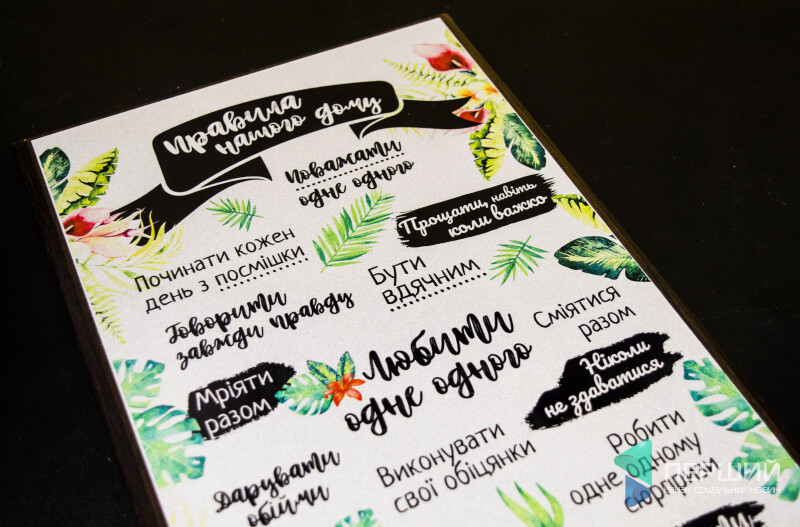 Правила
нашого дому
Поважати
одне одного
Прощати, навіть
коли важко
Починати кожен
день з посмішки
Бути
вдячним
Говорити
завжди правду
Сміятися
разом
Любити
одне одного
Ніколи
не здаватися
Мріяти
разом
Робити
одне одному
сюрпризи
Виконувати
свої обіцянки
Дарувати
обійми
ПЕРШИЙ